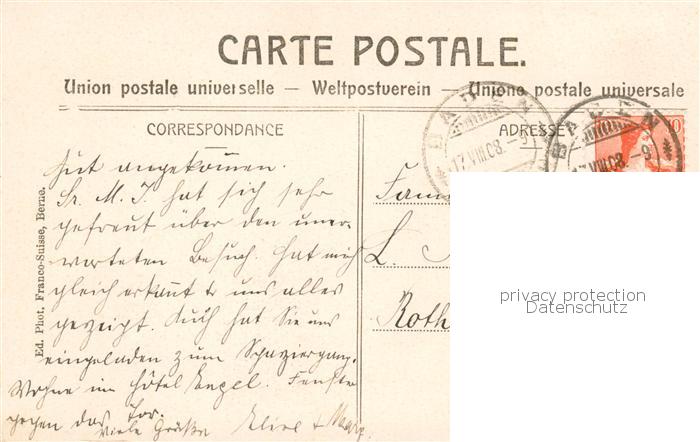 CARTE POSTALE.
Union postale universelle — Weltpostverein — Unione postale universale
CORRESPONDANCE
ADRESSE
BADEN
17.VIII.08.-9
BADEN
17.VIII.08.-9
10
Gut angekommen.
Sr. M. J. hat sich sehr
gefreut über den uner-
warteten Besuch. Hat mich
gleich erkannt & uns alles
gezeigt. Auch hat Sie uns
eingeladen zum Spaziergang.
Wohne im Hôtel Engel. Fenster
gegen das Tor.
Viele Grüße
Ed. Phot. Franco-Suisse, Berne.
Fam
L.
Roth
privacy protection
Datenschutz